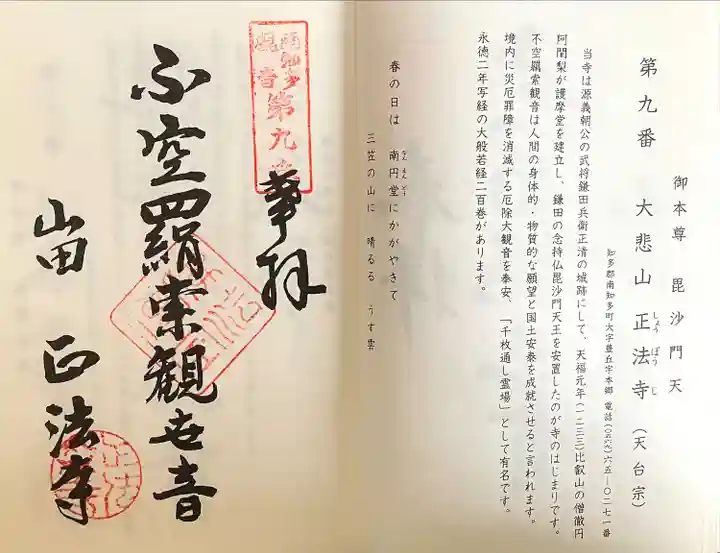 御本尊 毘沙門天
第九番 大悲山正法寺(天台宗)
しょうぼうじ
知多郡南知多町大字豊丘字本郷 電話(〇五六九)六五―〇二七一番
当寺は源義朝公の武将鎌田兵衛正清の城跡にして、天福元年(一二三三)比叡山の僧徹円
阿闍梨が護摩堂を建立し、鎌田の念持仏毘沙門天王を安置したのが寺のはじまりです。
不空羂索観音は人間の身体的・物質的な願望と国土安泰を成就させると言われます。
境内に災厄罪障を消滅する厄除大観音を奉安、「千枚通し霊場」として有名です。
永徳二年写経の大般若経二百巻があります。
春の日は 南円堂にかがやきて
なんえんどう
三笠の山に 晴るる うす雲
南知多
観音
第九
奉拝
不空羂索観世音
山田 正法寺